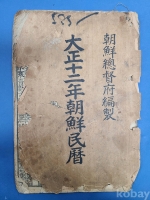 525-
朝鮮總督府編製
大正十二年朝鮮民曆
Kobay